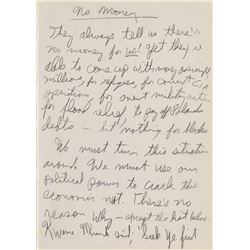 No Money
They always tell us there's
no money for us! Yet they're
able to come up with money overnight
millions, for refugees, for covert
operations, for overt military action
for flood relief, to pay off Poland
debts — but nothing for blacks
We must turn this situation
around. We must use our
political power to crack the
economic nut. There's no
reason why — accept the hint below
Kwame said, "Seek ye first